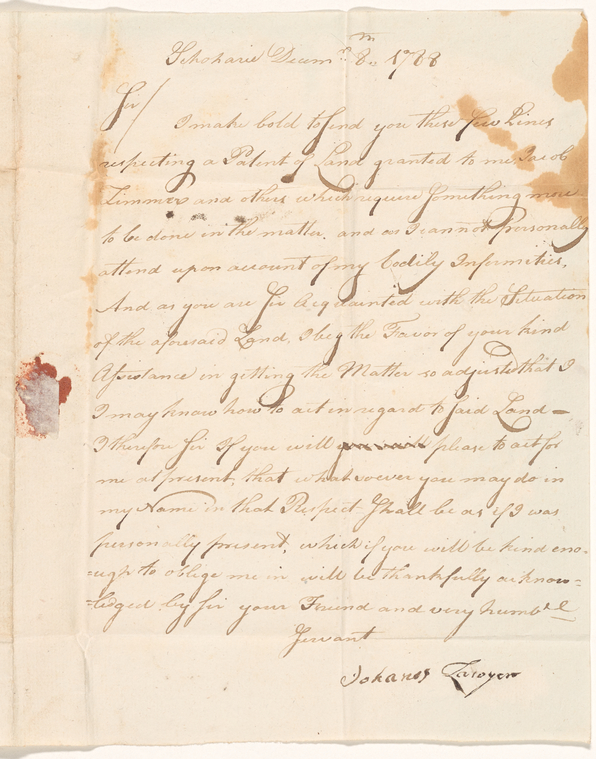 Schoharie Decemr. 8th. 1788
Sir/
I make bold to send you these few Lines
respecting a Patent of Land granted to me Jacob
Zimmer and others which require something more
to be done in the matter. and as I cannot Personally
attend upon account of my bodily Infirmities.
And as you are Sir Acquainted with the Situation
of the aforesaid Land, I beg the Favor of your kind
Assistance in getting the Matter so adjusted that I
I may know how to act in regard to said Land —
I therefore Sir If you will please to act for
me at present, that whatsoever you may do in
my Name in that Respect Shall be as if I was
personally present, which if you will be kind eno-
-ugh to oblige me in will be thankfully acknow=
=ledged by Sir your Friend and very humble
Servant
Johanes